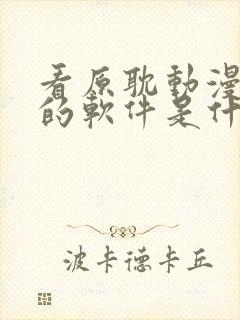 看原耽動漫
的軟件是什
波卡德卡丘